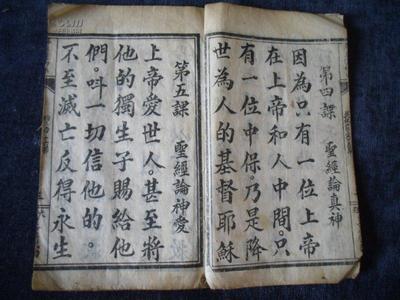 第四課 聖經論真神
因為只有一位上帝
在上帝和人中間。只
有一位中保乃是降
世為人的基督耶穌
第五課 聖經論神愛
上帝愛世人。甚至將
他的獨生子賜給他
們。呌一切信他的。
不至滅亡反得永生